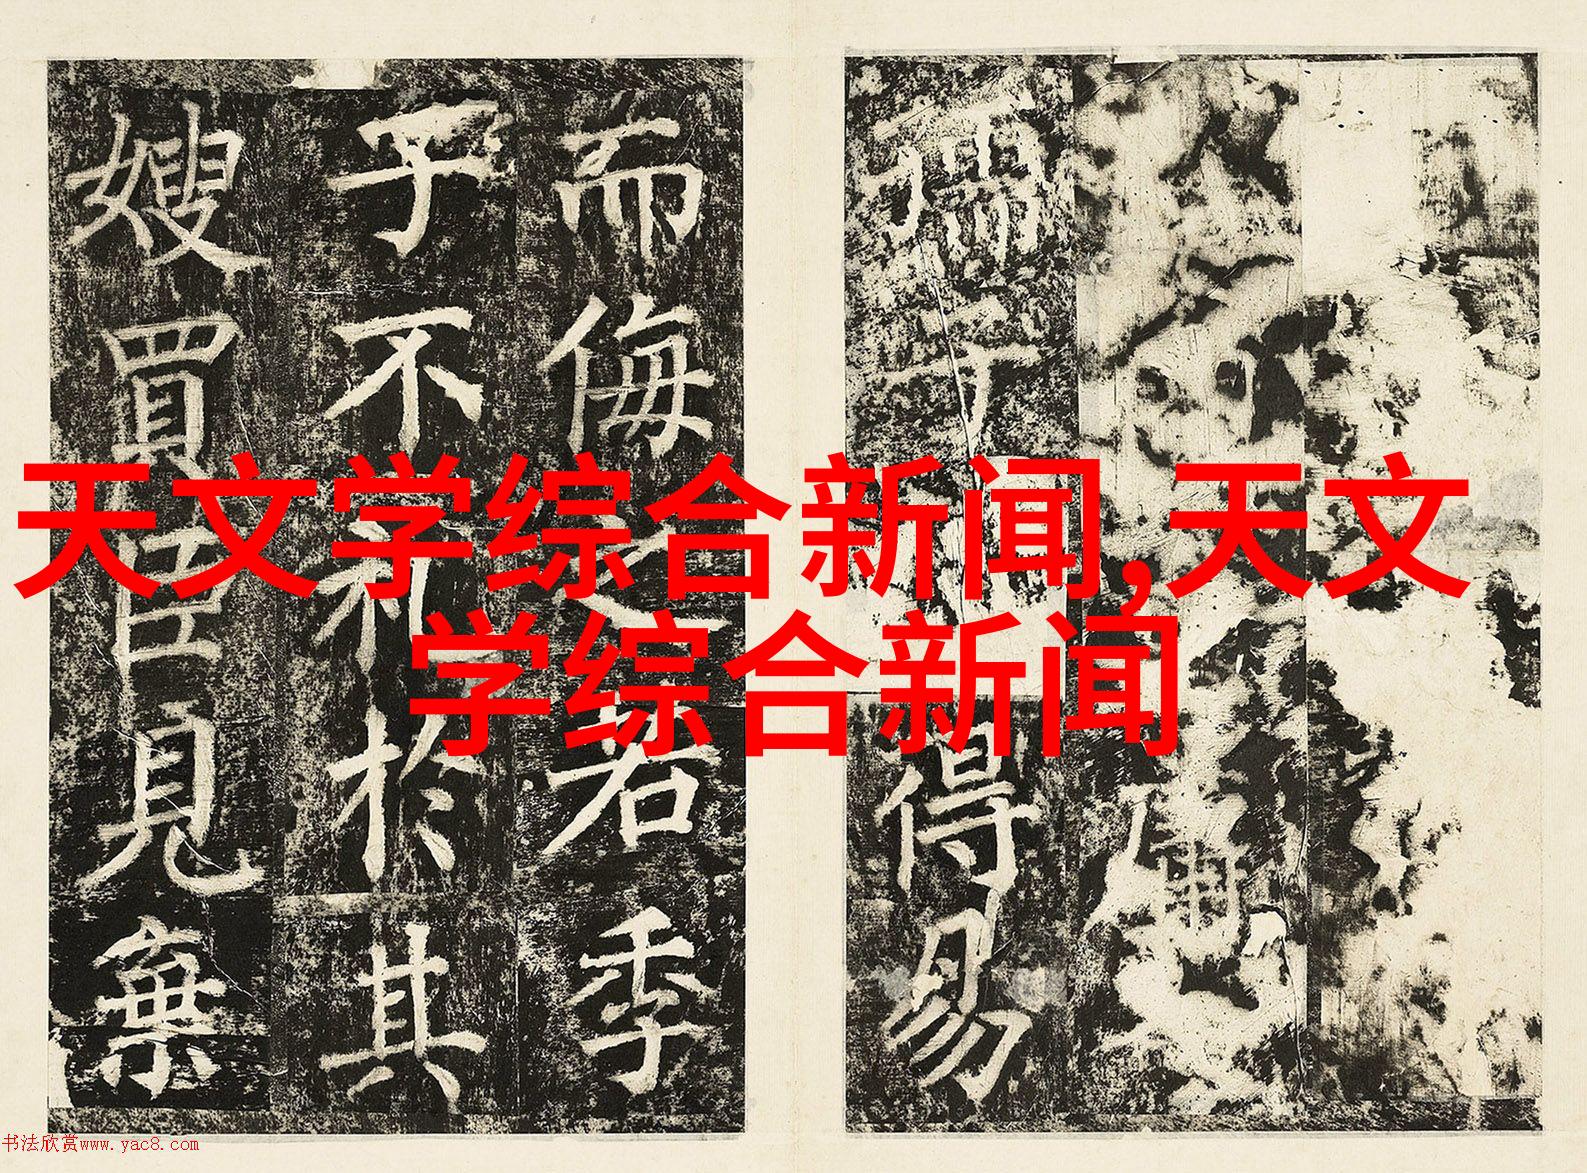 天文学综合新闻,天文
学综合新闻
得易
而侮之若季
子不礼於其
嫂買臣見棄
书法欣赏www.yac8.com